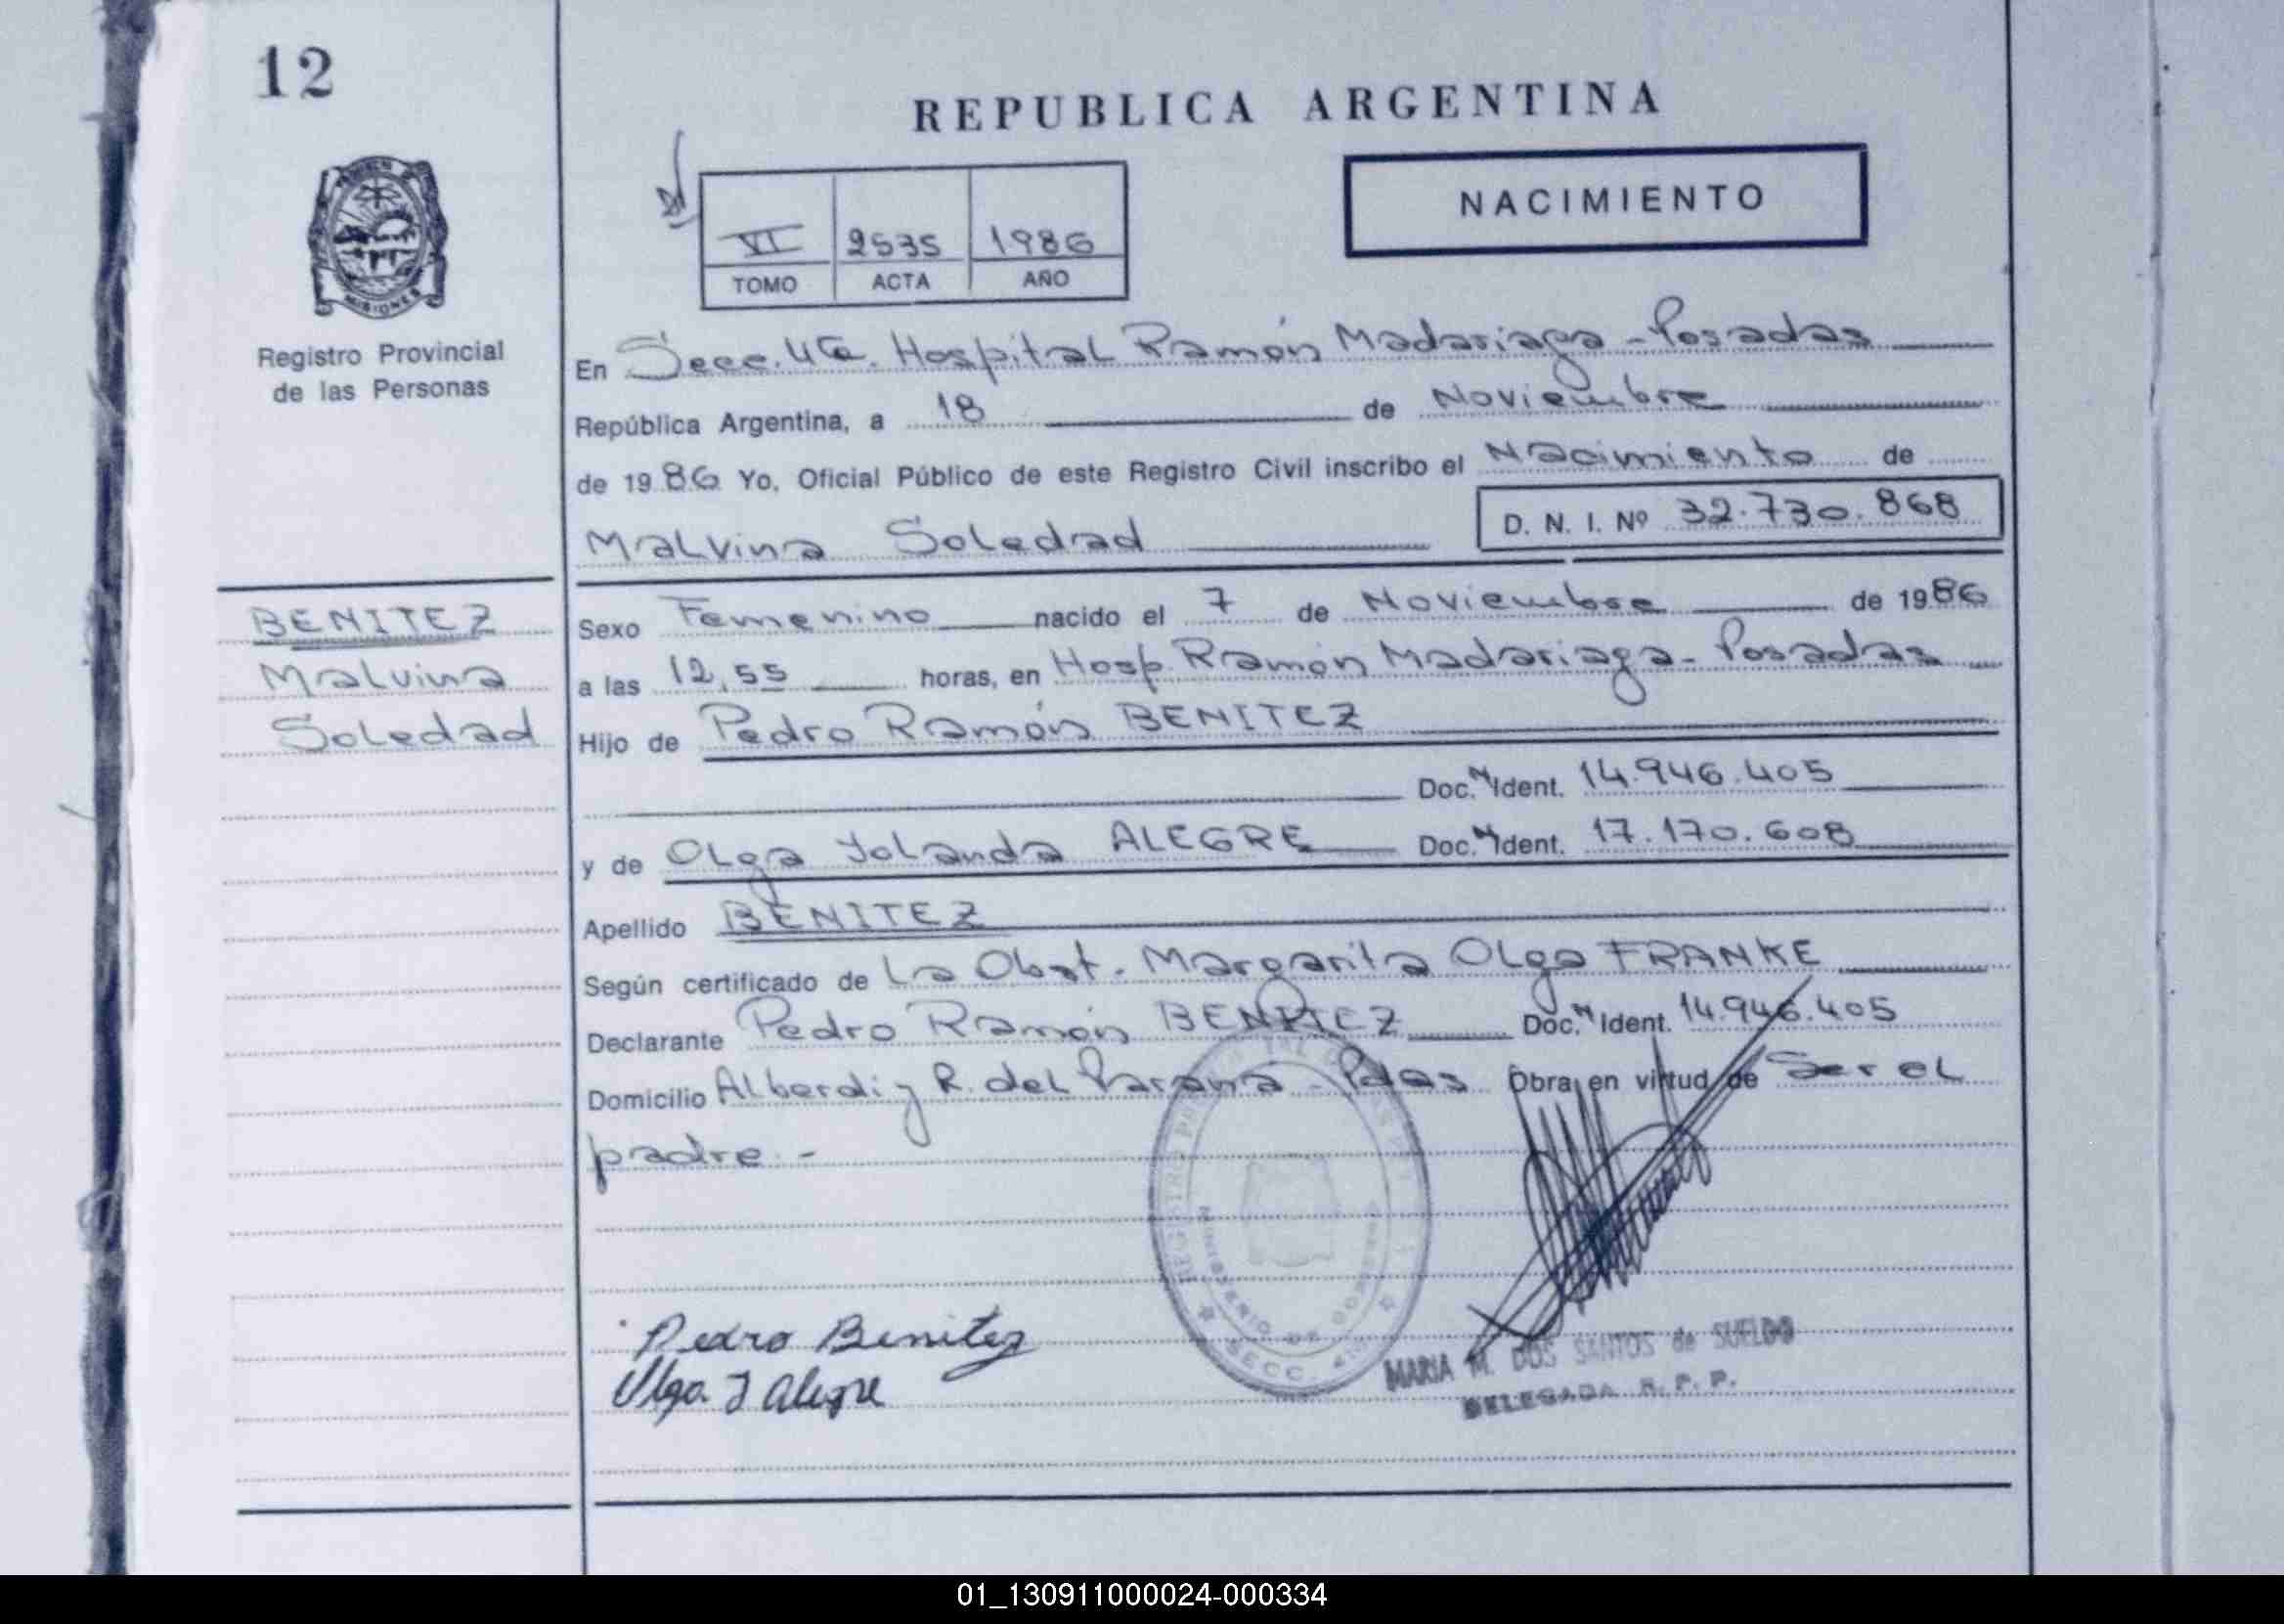 12
REPUBLICA ARGENTINA
NACIMIENTO
VI 2535 1986
TOMO ACTA AÑO
MISIONES
Registro Provincial
de las Personas
En Secc. 4ta. Hospital Ramón Madariaga - Posadas
República Argentina, a 18 de Noviembre
de 1986 Yo, Oficial Público de este Registro Civil inscribo el Nacimiento de
Malvina Soledad D. N. I. Nº 32.730.868
BENITEZ
Malvina
Soledad
Sexo Femenino nacido el 7 de Noviembre de 1986
a las 12,55 horas, en Hosp. Ramón Madariaga - Posadas
Hijo de Pedro Ramón BENITEZ
Doc. N Ident. 14.946.405
y de Olga Yolanda ALEGRE Doc. N Ident. 17.170.608
Apellido BENITEZ
Según certificado de La Obst. Margarita Olga FRANKE
Declarante Pedro Ramón BENITEZ Doc. N Ident. 14.946.405
Domicilio Alberdi y R. del Paraná - Pdas Obra en virtud de Ser el
padre. -
MINISTERIO DE GOBIERNO
SECC. 4ta
Pedro Benitez
Olga J Alegre
MARIA M. DOS SANTOS de SUELDO
DELEGADA R. P. P.
01_130911000024-000334